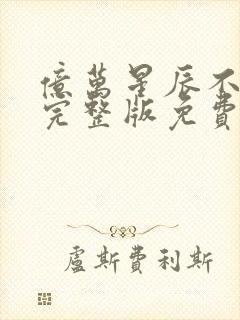 億萬星辰不
完整版免費
盧斯費利斯